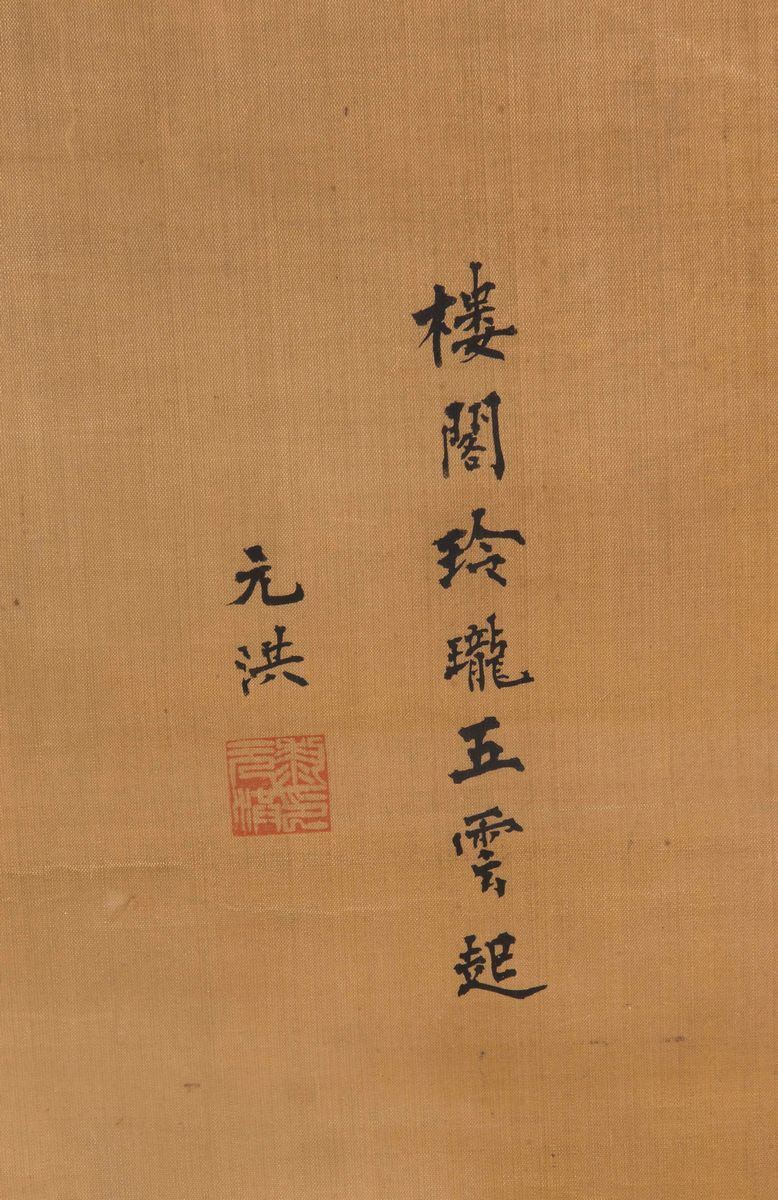 楼閣玲瓏五雲起
元洪